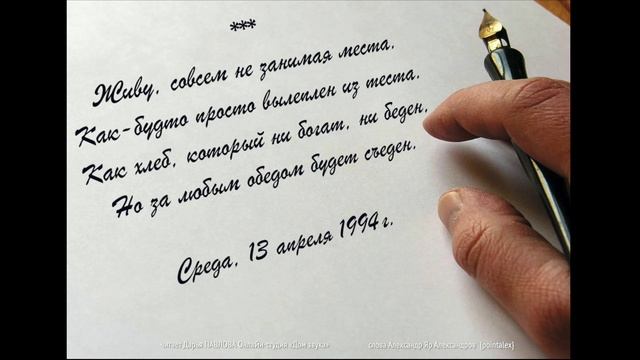 ***
Живу, совсем не занимая места,
Как-будто просто вылеплен из теста.
Как хлеб, который ни богат, ни беден,
Но за любым обедом будет съеден.
Среда, 13 апреля 1994 г.
читает Дарья ПАВЛОВА Онлайн-студия «Дом звука» слова Александр Яр Александров (pointalex)